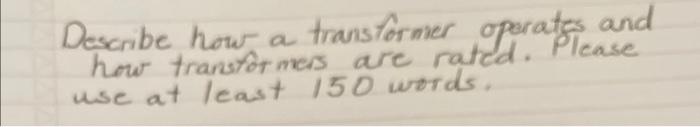 Describe how a transformer operates and
how transformers are rated. Please
use at least 150 words.